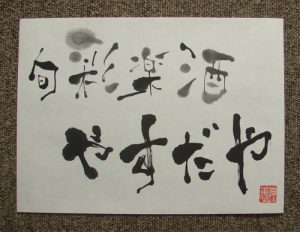 旬彩楽酒
やすだや